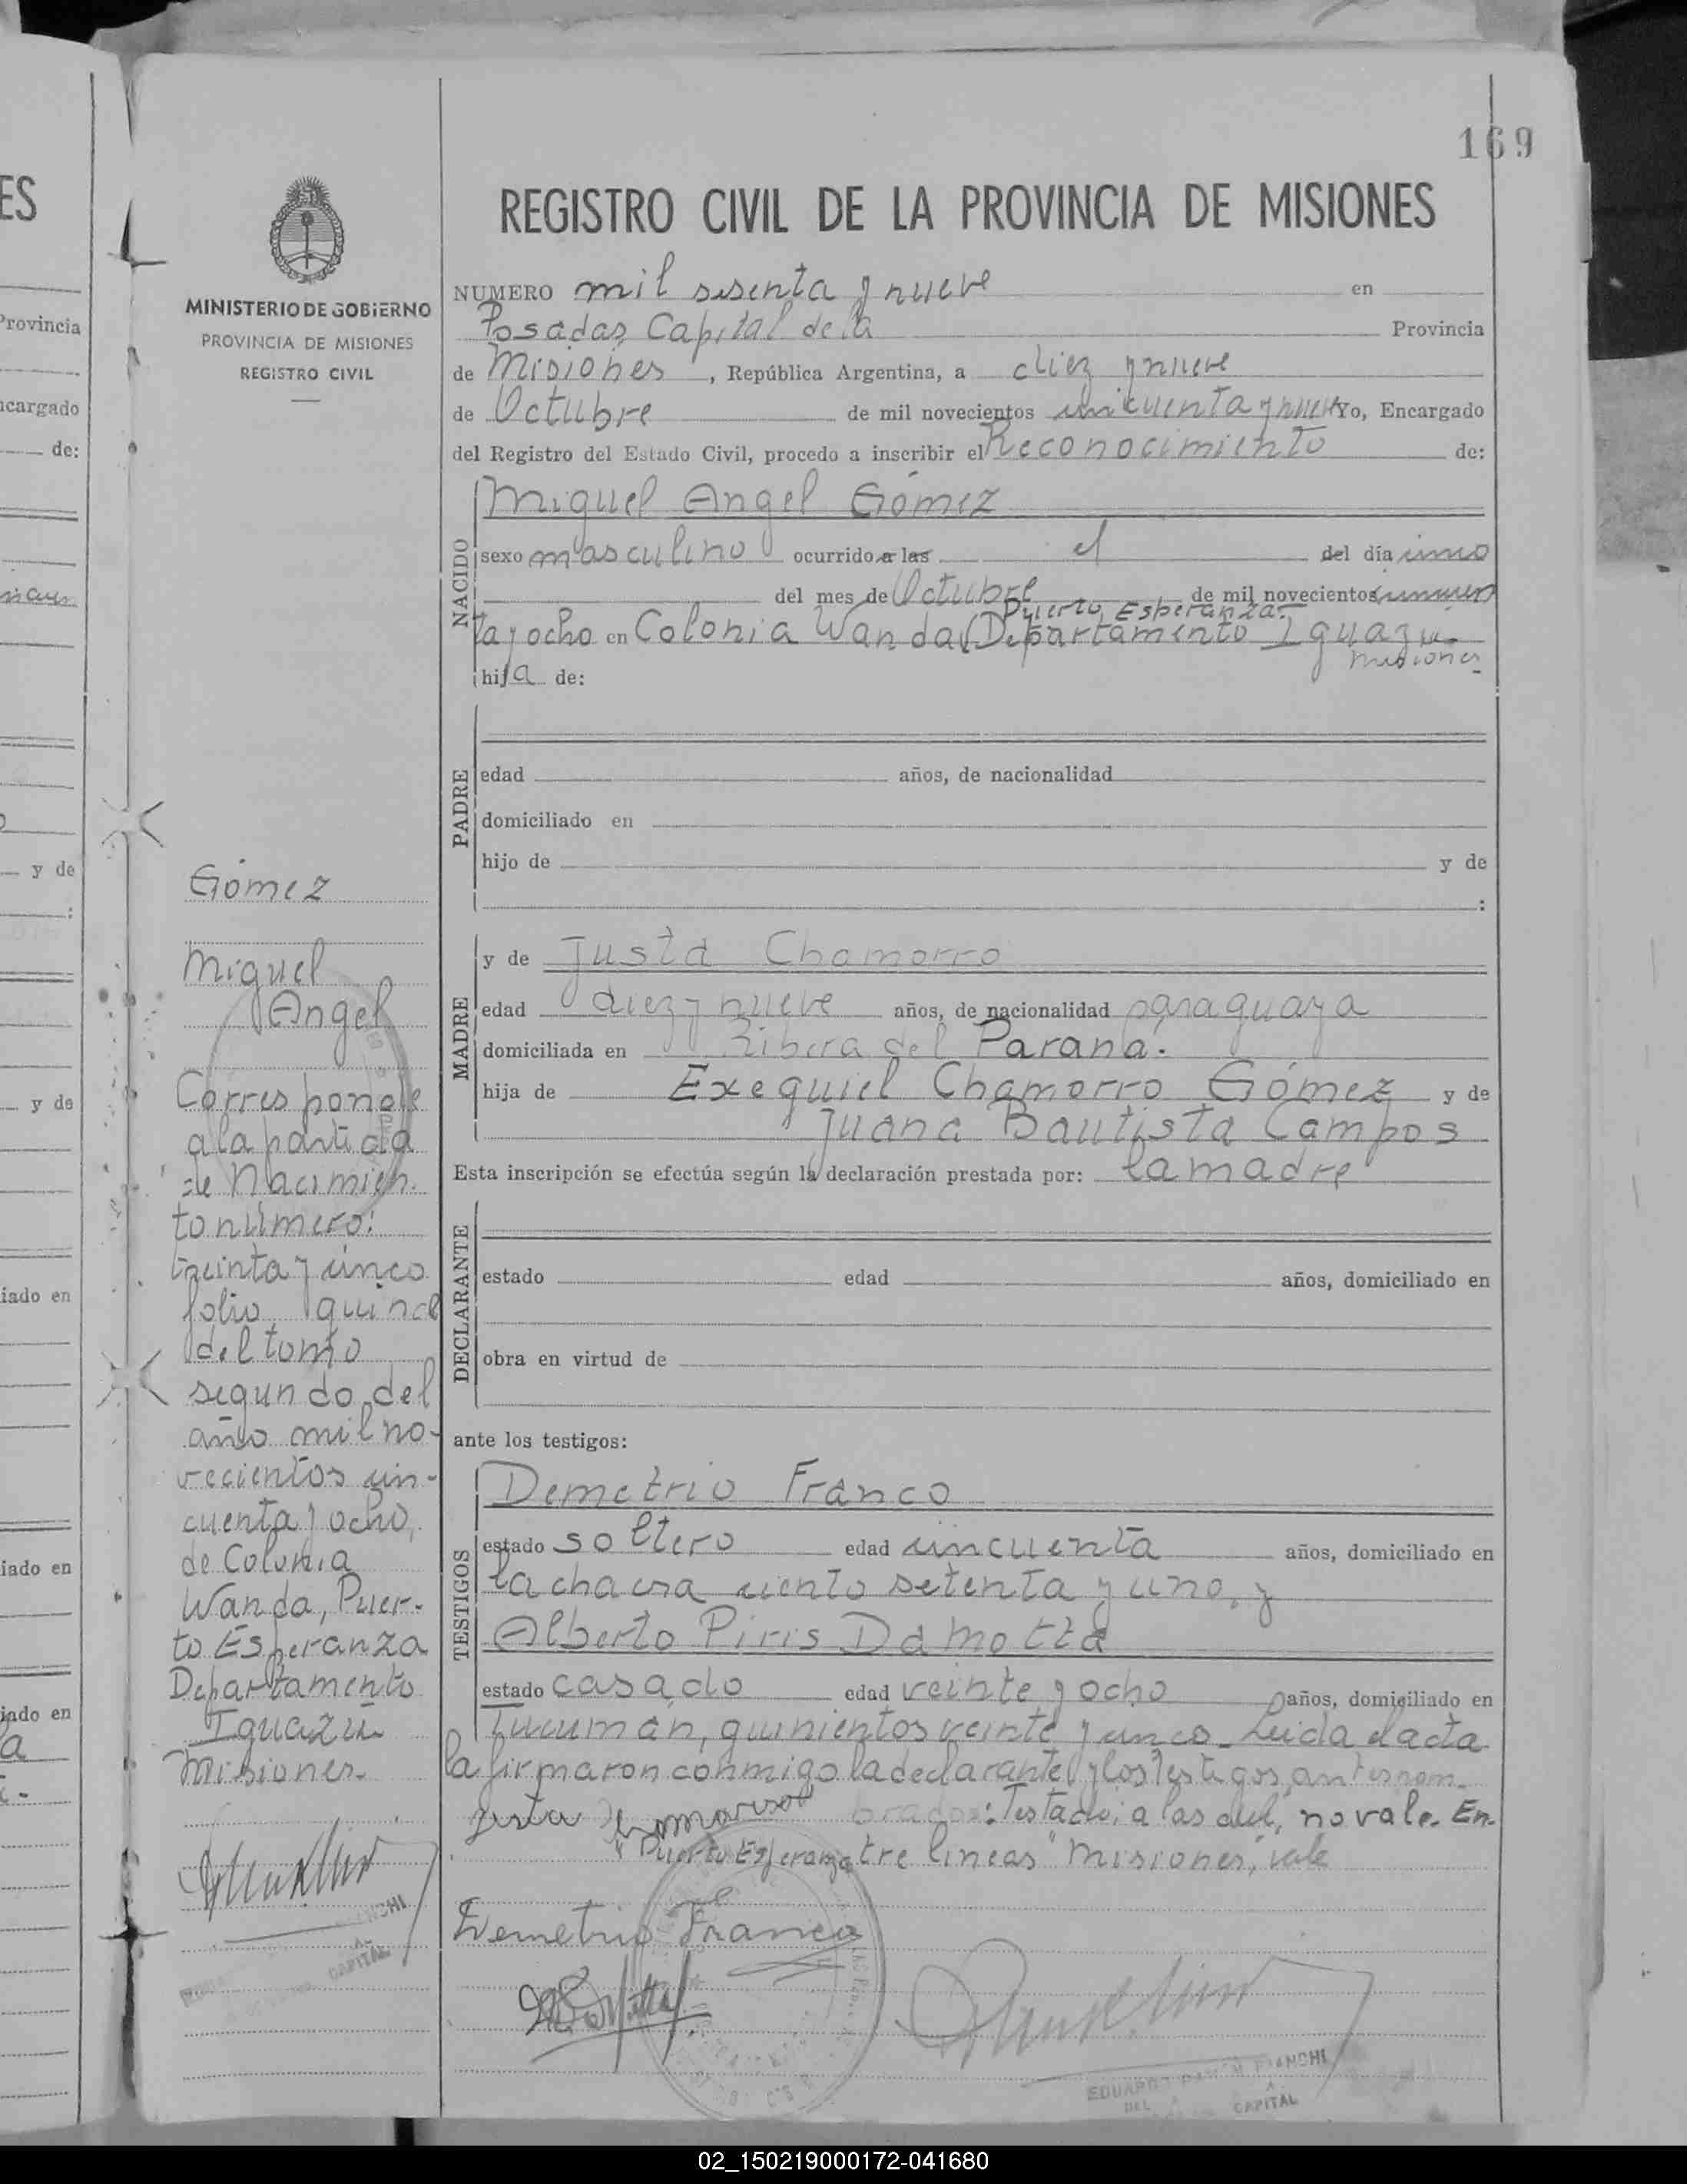 169
ES
Provincia
ncargado
de:
y de
:
y de
iado en
iado en
iado en
a
MINISTERIO DE GOBIERNO
PROVINCIA DE MISIONES
REGISTRO CIVIL
Gómez
Miguel
Angel
Corresponde
a la partida
de Nacimien
to número:
treinta y cinco
folio quince
del tomo
segundo del
año mil no-
vecientos cin-
cuenta y ocho,
de Colonia
Wanda, Puer-
to Esperanza
Departamento
Iguazu
Misiones.
CAPITAL
REGISTRO CIVIL DE LA PROVINCIA DE MISIONES
NUMERO mil sesenta y nueve en
Posadas Capital de la Provincia
de Misiones, República Argentina, a diez y nueve
de Octubre de mil novecientos cincuenta y nueve Yo, Encargado
del Registro del Estado Civil, procedo a inscribir el Reconocimiento de:
NACIDO
Miguel Angel Gómez
sexo masculino ocurrido a las el del día cinco
del mes de Octubre de mil novecientos cincuen
Puerto Esperanza.
ta y ocho en Colonia Wanda (Departamento Iguazu-
Misiones
hija de:
PADRE
edad años, de nacionalidad
domiciliado en
hijo de y de
:
MADRE
y de Justa Chamorro
edad diez y nueve años, de nacionalidad paraguaya
domiciliada en Ribera del Paraná.
hija de Exequiel Chamorro Gómez y de
Juana Bautista Campos
Esta inscripción se efectúa según la declaración prestada por: la madre
DECLARANTE
estado edad años, domiciliado en
obra en virtud de
ante los testigos:
TESTIGOS
Demetrio Franco
estado soltero edad cincuenta años, domiciliado en
la chacra ciento setenta y uno, y
Alberto Piris Da Motta
estado casado edad veinte y ocho años, domiciliado en
Tucumán, quinientos veinte y cinco- Leida el acta
la firmaron conmigo la declarante y los testigos antes nom-
brados: Testado: a las del, no vale. En-
Justa
"Puerto Esperanza tre lineas "Misiones, vale
Demetrio Franco
EDUARDO RAMON BIANCHI
DEL CAPITAL
02_150219000172-041680